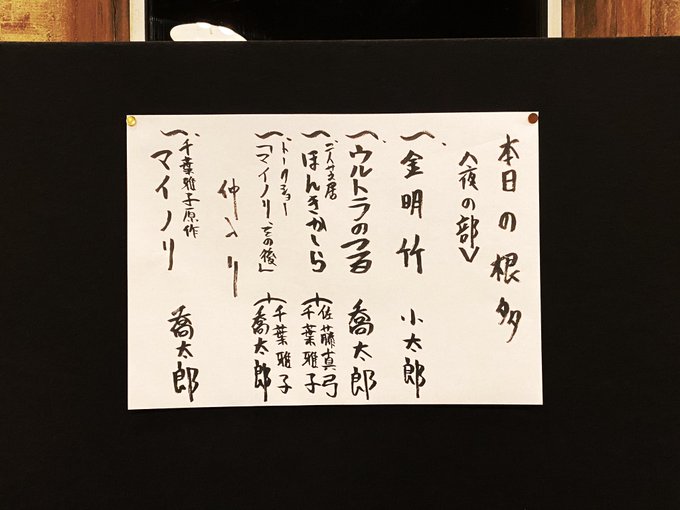 本日の根多
<夜の部>
一、金明竹 小太郎
一、ウルトラのつる 喬太郎
一、二人芝居 ほんきかしら 佐藤真弓 千葉雅子
一、トークショー「マイノリ、その後」 千葉雅子 喬太郎
仲入り
一、千葉雅子原作 マイノリ 喬太郎